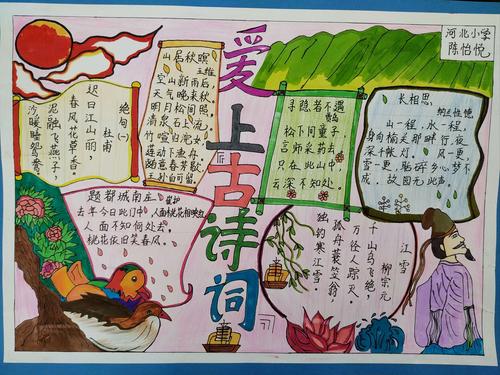 河北小学
陈怡悦
爱上古诗词
绝句(一)
杜甫
迟日江山丽,
春风花草香。
泥融飞燕子,
沙暖睡鸳鸯。
山居秋暝
王维
空山新雨后,
天气晚来秋。
明月松间照,
清泉石上流。
寻隐者不遇
松下问童子,
言师采药去。
只在此山中,
云深不知处。
长相思
纳兰性德
山一程,水一程,
身向榆关那畔行,夜
深千帐灯。风一更,
雪一更,聒碎乡心梦不
成,故园无此声。
题都城南庄
崔护
去年今日此门中,
人面桃花相映红。
人面不知何处去,
桃花依旧笑春风。
江雪
柳宗元
千山鸟飞绝,
万径人踪灭。
孤舟蓑笠翁,
独钓寒江雪。